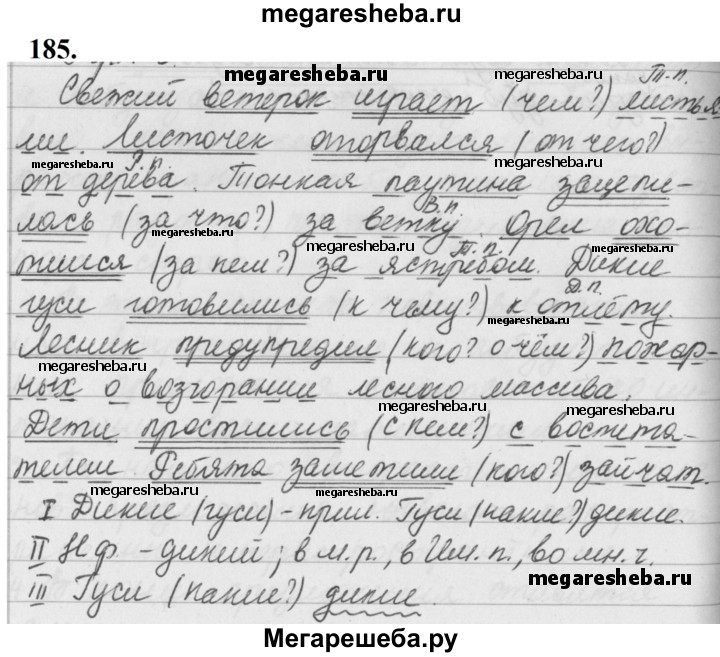 megaresheba.ru
185.
megaresheba.ru
Т.п.
Свежий ветерок играет (чем?) листья-
ми. Листочек оторвался (от чего?)
megaresheba.ru
megaresheba.ru Р.п.
от дерева. Тонкая паутина зацепи-
В.п.
лась (за что?) за ветку. Орел охо-
megaresheba.ru
megaresheba.ru Т.п.
тился (за кем?) за ястребом. Дикие
Д.п.
гуси готовились (к чему?) к отлёту.
megaresheba.ru
Лесник предупредил (кого? о чём?) пожар-
ных о возгорании лесного массива.
megaresheba.ru
megaresheba.ru
Дети простились (с кем?) с воспита-
телем Ребята заметили (кого?) зайчат.
megaresheba.ru
megaresheba.ru
I Дикие (гуси) - прил. Гуси (какие?) дикие.
II Н.ф. - дикий; в м.р., в Им.п., во мн.ч.
megaresheba.ru
III Гуси (какие?) дикие.
Мегарешеба.ру